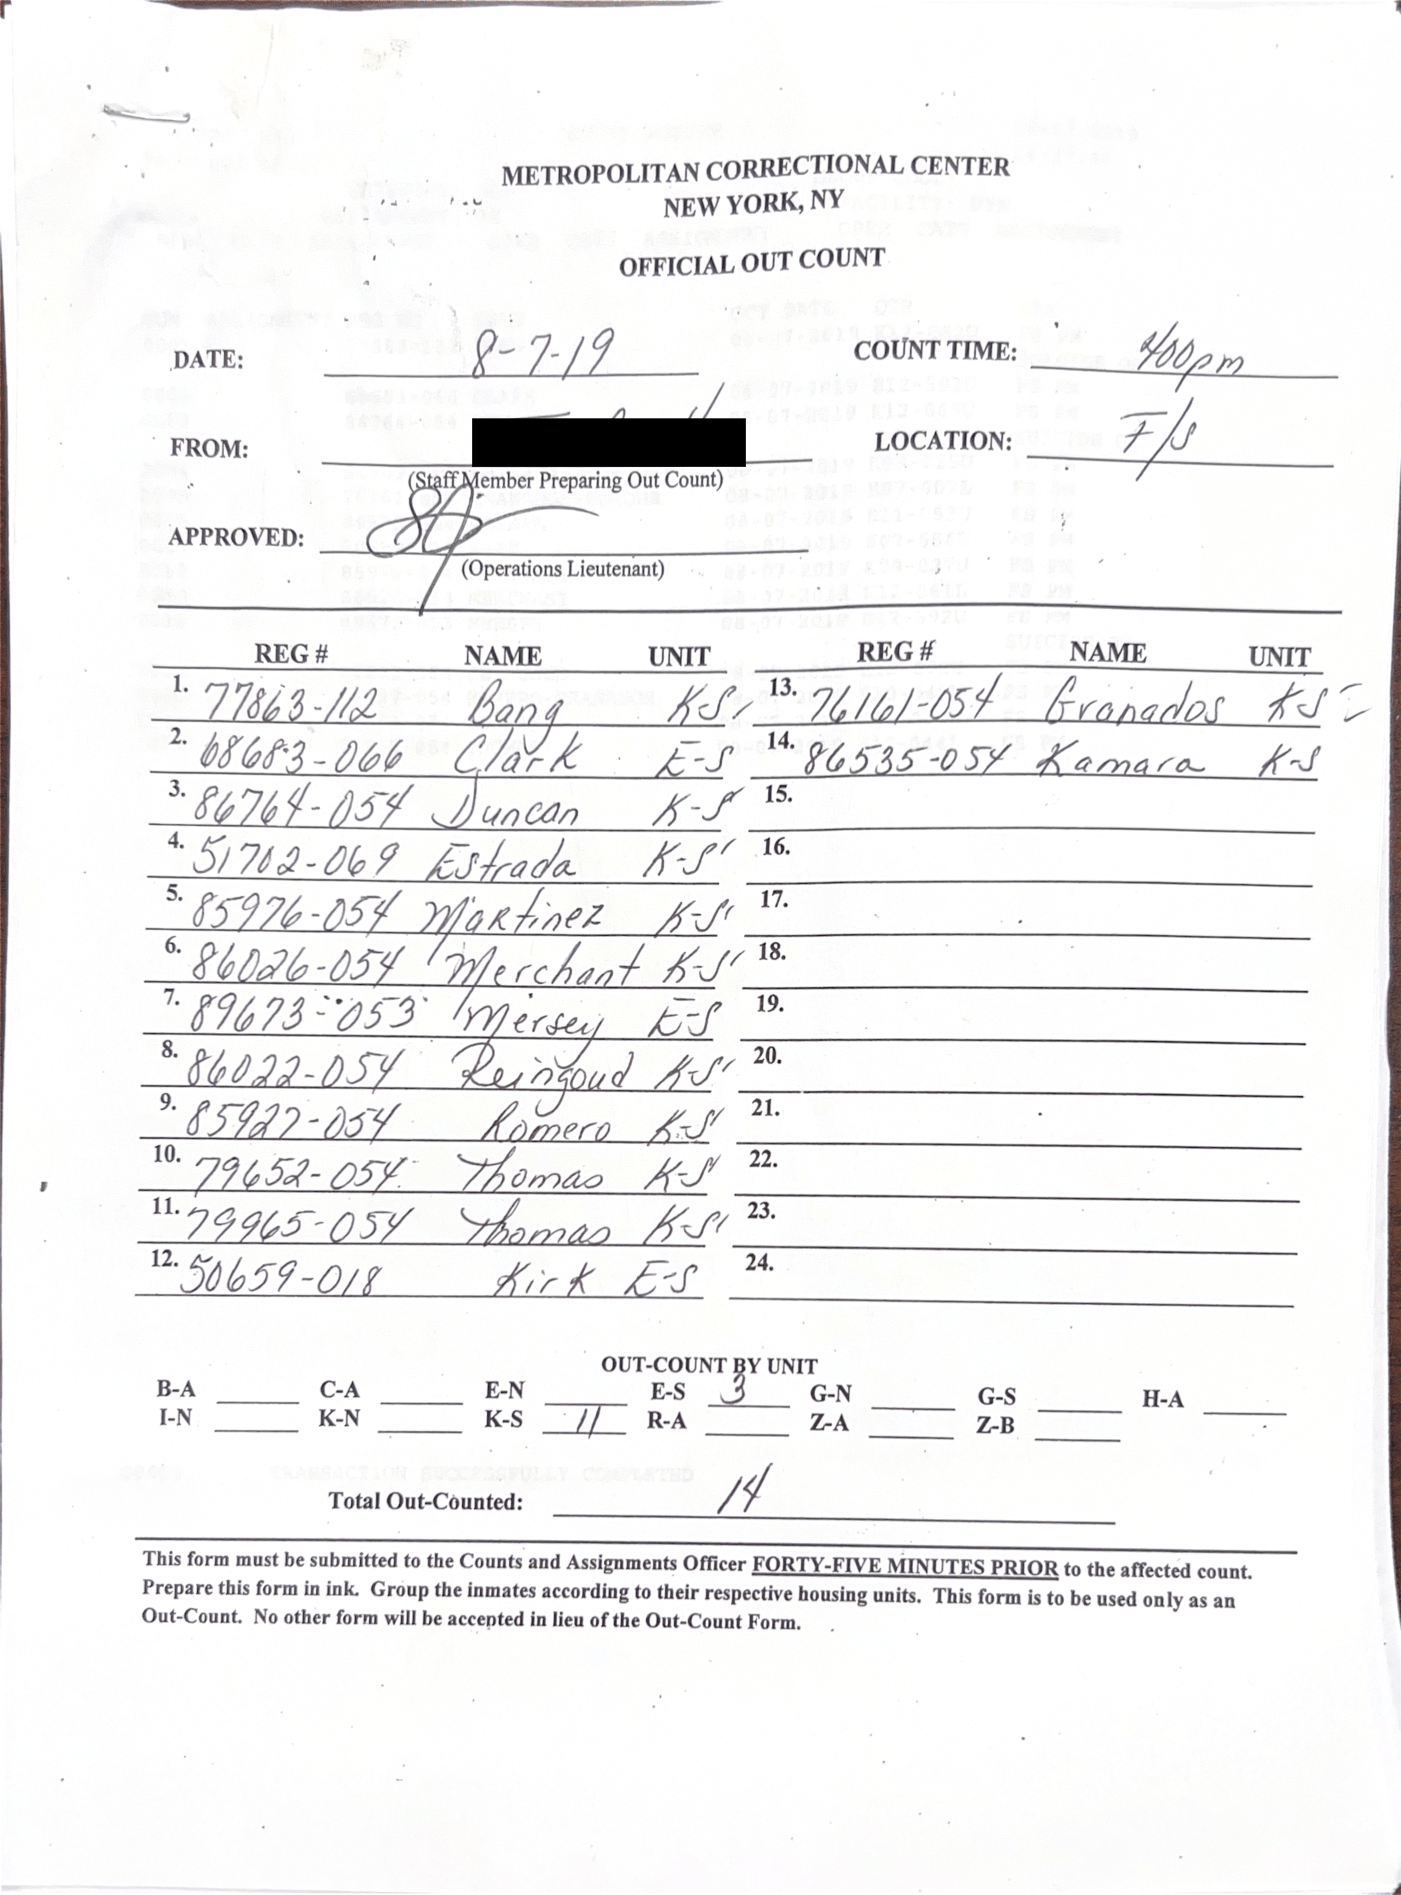 METROPOLITAN CORRECTIONAL CENTER
NEW YORK, NY
OFFICIAL OUT COUNT
DATE: 8-7-19 COUNT TIME: 400pm
FROM: LOCATION: F/S
(Staff Member Preparing Out Count)
APPROVED:
(Operations Lieutenant)
REG # NAME UNIT REG # NAME UNIT
1. 77863-112 Bang K-S 13. 76161-054 Granados K-S
2. 68683-066 Clark E-S 14. 86535-054 Kamara K-S
3. 86764-054 Duncan K-S 15.
4. 51702-069 Estrada K-S 16.
5. 85976-054 Martinez K-S 17.
6. 86026-054 Merchant K-S 18.
7. 89673-053 Mersey E-S 19.
8. 86022-054 Reingoud K-S 20.
9. 85927-054 Romero K-S 21.
10. 79652-054 Thomas K-S 22.
11. 79965-054 Thomas K-S 23.
12. 50659-018 Kirk E-S 24.
OUT-COUNT BY UNIT
B-A C-A E-N E-S 3 G-N G-S H-A
I-N K-N K-S 11 R-A Z-A Z-B
TRANSACTION SUCCESSFULLY COMPLETED
Total Out-Counted: 14
This form must be submitted to the Counts and Assignments Officer FORTY-FIVE MINUTES PRIOR to the affected count.
Prepare this form in ink. Group the inmates according to their respective housing units. This form is to be used only as an
Out-Count. No other form will be accepted in lieu of the Out-Count Form.